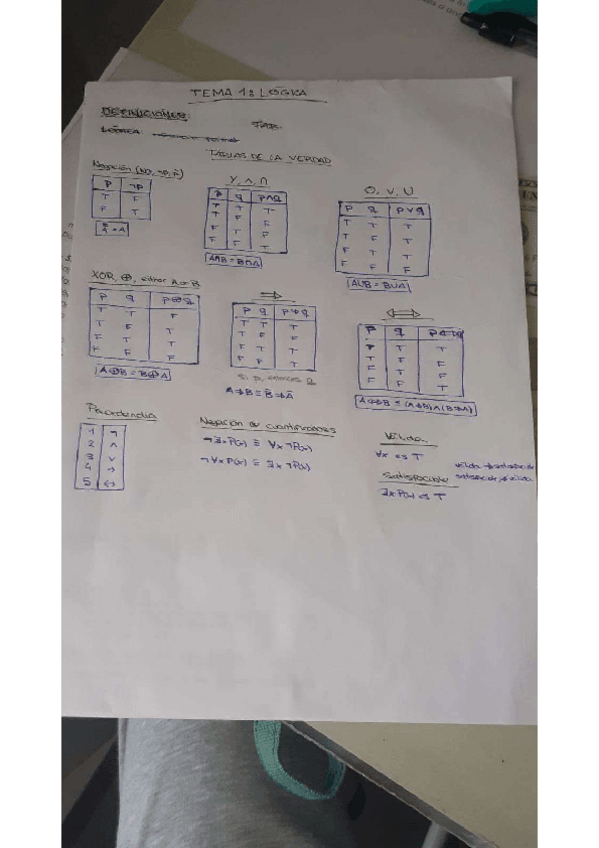 TEMA 1: LÓGICA
DEFINICIONES:
LÓGICA:
TABLAS DE LA VERDAD
Negación (NO, ¬p, p̄)
P ¬P
T F
F T
Y, ∧, ∩
P q P∧q
T T T
T F
F T
F F
A∩B = B∩A
O, ∨, U
P q P∨q
T T T
T F T
F T T
F F F
AUB = BUA
XOR, ⊕, either A or B
P q P⊕q
T T F
T F T
F T T
F F F
A⊕B = B⊕A
⇒
P q P→q
T T T
T F F
F T T
F F T
Si p, entonces q
A→B ≡ B̄→Ā
⇔
P q P↔q
T T T
T F F
F T F
F F T
A↔B ≡ (A→B)∧(B→A)
Precedencia
1 ¬
2 ∧
3 ∨
4 →
5 ↔
Negación de cuantificadores
¬∃x P(x) ≡ ∀x ¬P(x)
¬∀x P(x) ≡ ∃x ¬P(x)
Válida
∀x es T
Satisfacible
∃x P(x) es T